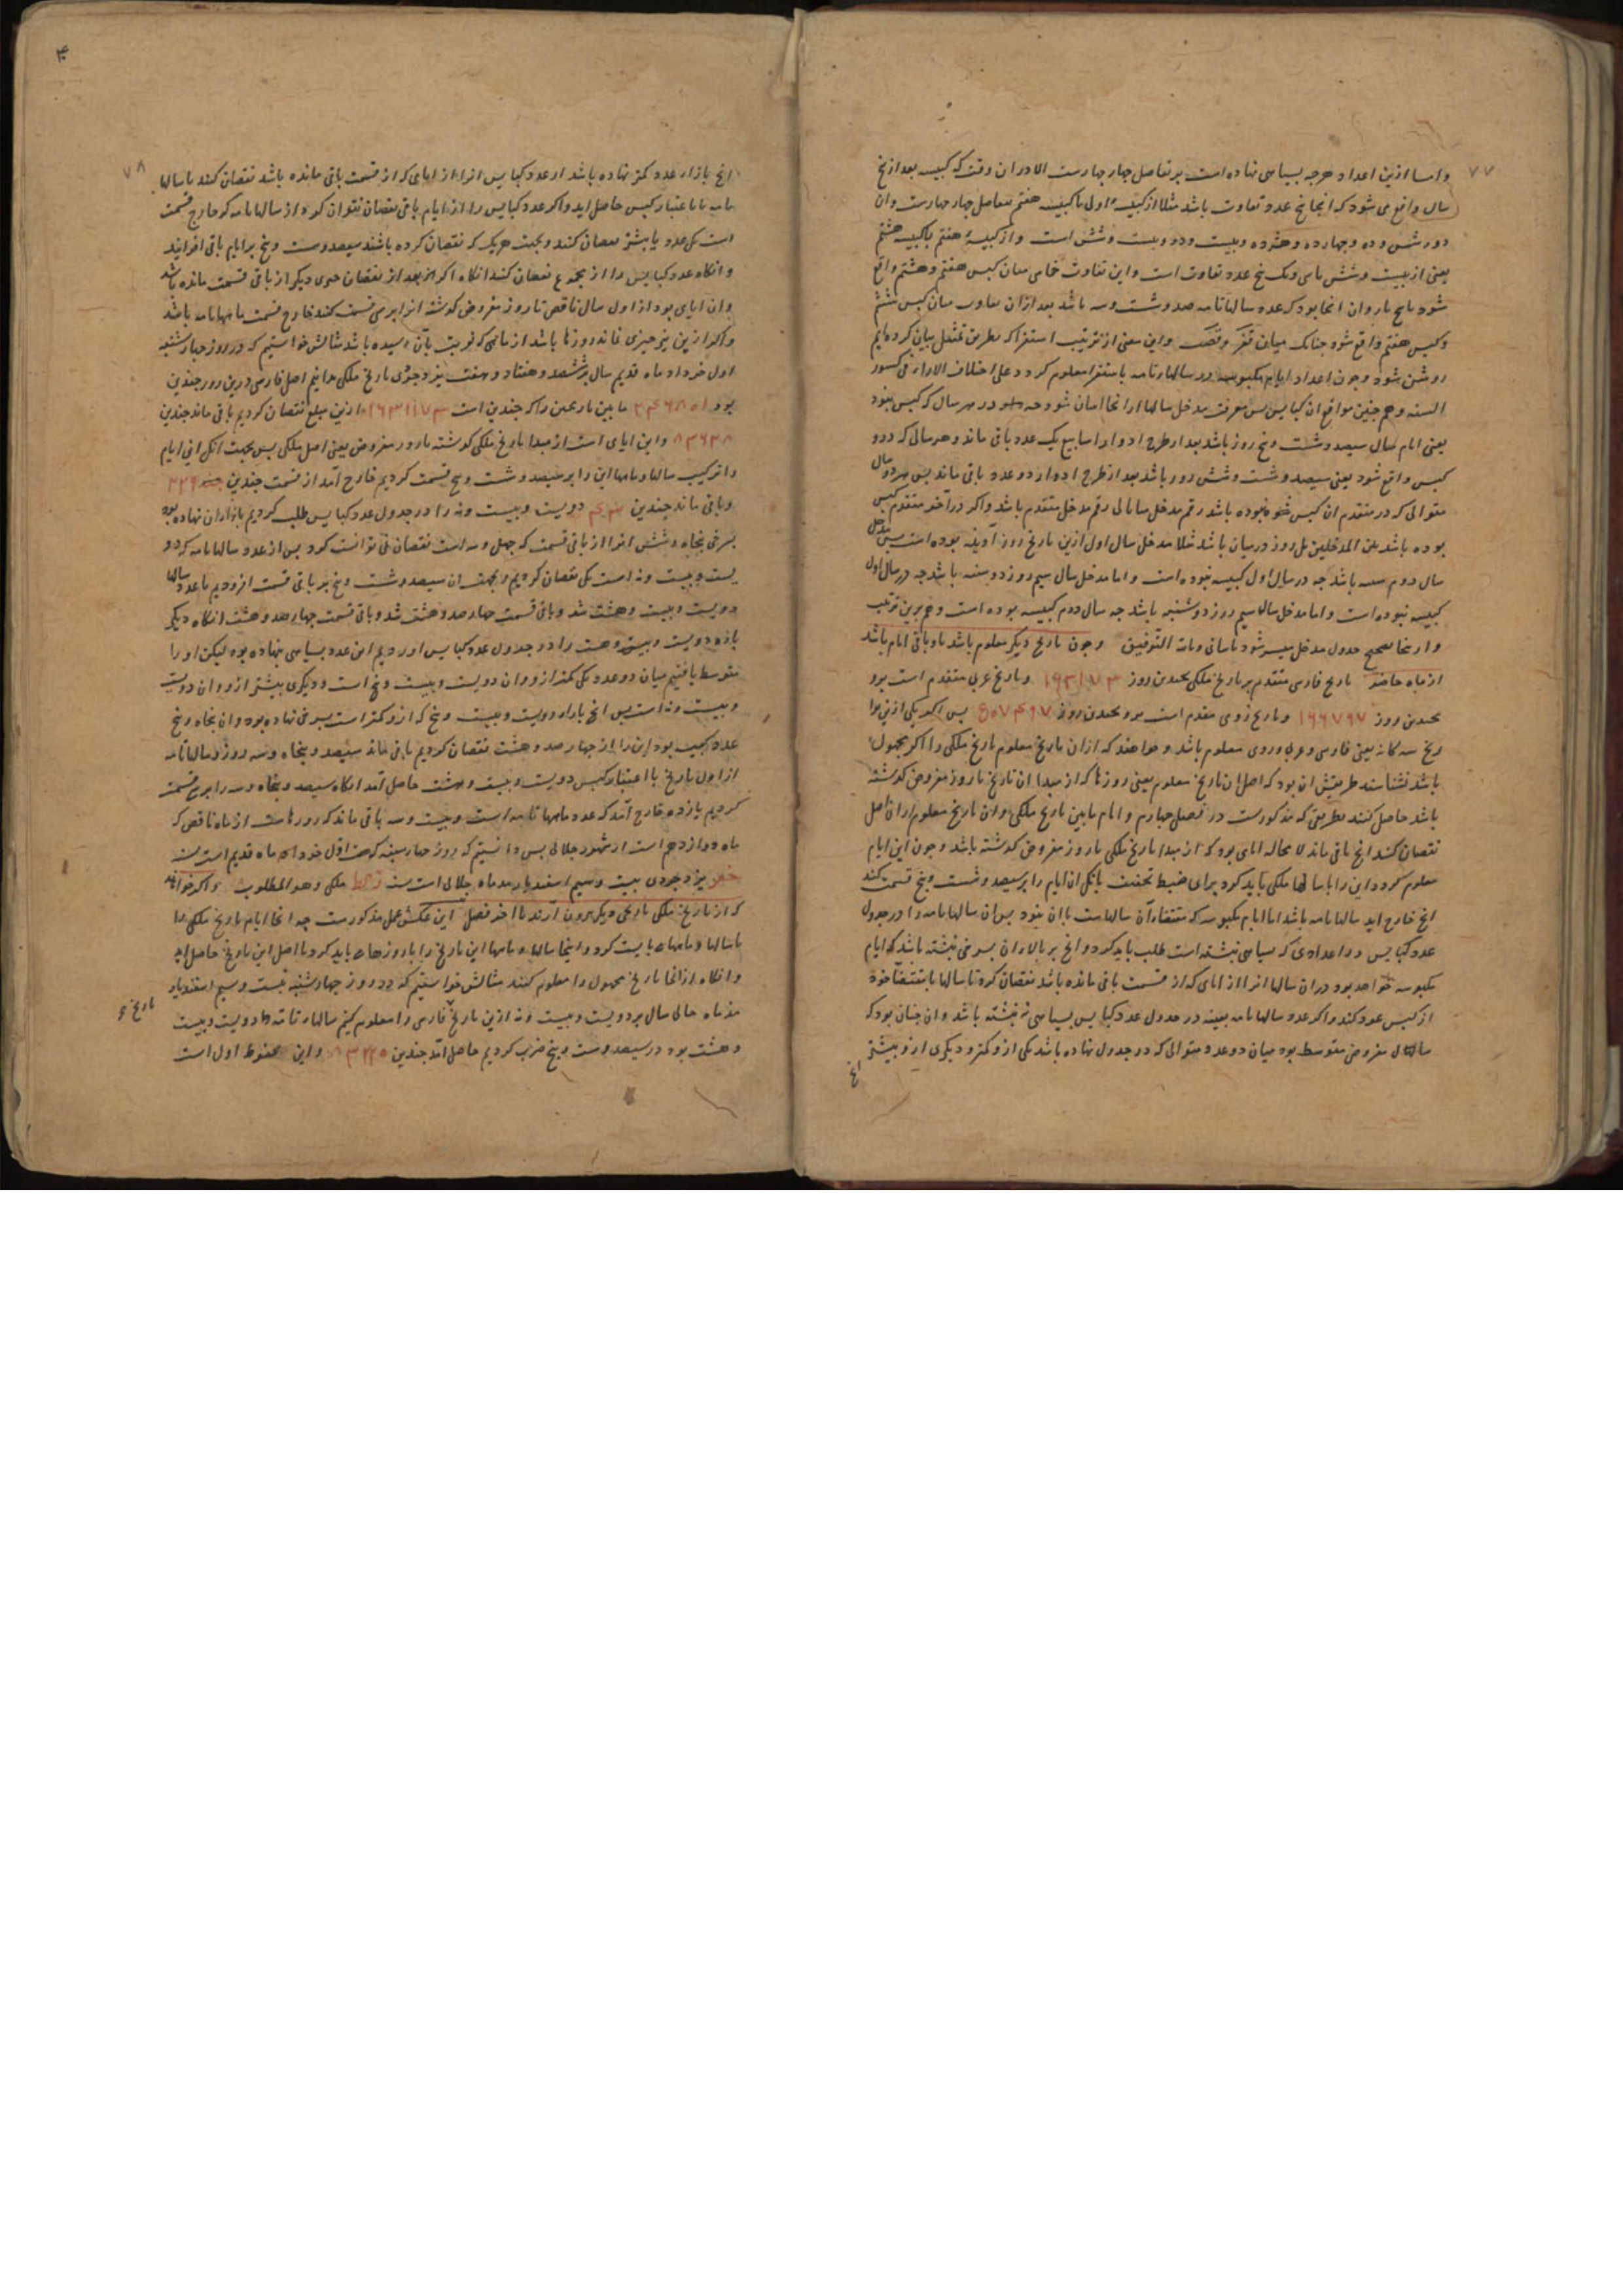 ۷۷
و اما ازین اعداد هرچه بسیاهی نهاده است بر تفاضل چهار چهارست الا در ان وقت که کبیسه بعد از پنج
سال واقع می شود که انجا پنج عدد تفاوت باشد مثلا از کبیسهٔ اولی تا کبیسه هفتم تفاضل چهار چهارست وان
دو و شش و ده و چهارده و هژده و بیست و دو و بیست و شش است و از کبیسهٔ هفتم تا کبیسه هشتم
یعنی از بیست و شش تا سی و یک پنج عدد تفاوت است و این تفاوت خاسی میان کبیس هفتم و هشتم واقع
شود تا ان انجا بود که عدد سالها تامه صد و شست و سه باشد بعد ازان تفاوت میان کبیس ششم
و کبیس هفتم واقع شود چنانک میان و این معنی از ترتیب استقرا که بطریق تمثیل بیان کرده ایم
روشن شود و چون اعداد ایام مکبوسه در سالهار تامه باستقرا معلوم کردد علی اختلاف الادوار فی کسور
السنه و هم چنین مواقع ان کبایس پس معرفت مدخل سالها از انجا اسان شود چه در هر سال که کبیس نبود
یعنی ایام سال سیصد و شست و پنج روز باشد بعد از طرح ادوار اسابیع یک عدد باقی ماند و هر سالی که درو
کبیس واقع شود یعنی سیصد و شست و شش روز باشد بعد از طرح ادوار دو عدد باقی ماند پس هر دو سال
متوالی که در متقدم ان کبیس نبوده باشد رقم مدخل سال تالی رقم مدخل متقدم باشد و اکر در آخر متقدم کبیس
بوده باشد بین المدخلین یک روز در میان باشد مثلا مدخل سال اول ازین تاریخ روز آدینه بوده است پس مدخل
سال دوم شنبه باشد چه در سال اول کبیسه نبوده است و اما مدخل سال سیم روز دوشنبه باشد چه در سال اول
کبیسه نبوده است و اما مدخل سال سیم روز دوشنبه باشد چه سال دوم کبیسه بوده است و هم برین ترتیب
و از انجا تصحیح جدول مدخل میسر شود باسانی و بالله التوفیق و چون تاریخ دیکر معلوم باشد تا و باقی ایام باشد
از ماه حاضر تاریخ فارسی متقدم بر تاریخ ملکی بچندین روز ۱۶۳۱۷۳ و تاریخ عربی متقدم است برو
بچندین روز ۱۶۶۷۹۷ و تاریخ رومی مقدم است برو بچندین روز ۵۰۷۴۹۷ پس اکر یکی ازین توا
ریخ سه کانه یعنی فارسی و عربی و رومی معلوم باشد و خواهند که ازان تاریخ معلوم تاریخ ملکی را اکر مجهول
باشد بشناسند طریقش ان بود که اصل ان تاریخ معلوم یعنی روزها که از مبدا ان تاریخ تا روز مفروض کذشته
باشد حاصل کنند بطریقی که مذکورست در فصل چهارم و ایام مابین تاریخ ملکی و ان تاریخ معلوم از ان اصل
نقصان کنند انچ باقی ماند لا محاله ایامی بود که از مبدا تاریخ ملکی تا روز مفروض کذشته باشد و چون این ایام
معلوم کردد این را با سالها ملکی باید کرد برای ضبط تخفیف بانکه ان ایام را بر سیصد و شست و پنج قسمت کنند
انچ خارج اید سالها تامه باشد اما ایام مکبوسه که مقتضاء آن سالهاست با ان نبود پس ان سالها تامه را در جدول
عدد کبایس در اعدادی که بسیاهی نبشته است طلب باید کرد و انچ بر بالاء ان بسرخی نبشته باشد که ایام
مکبوسه خواهد بود دران سالها انرا از ایامی که از قسمت باقی مانده باشد نقصان کرد تا سالها بمقتضاء خود
از کبیس عود کند و اکر عدد سالها تامه بعینه در جدول عدد کبایس بسیاهی نه نبشته باشد و ان چنان بود که
سالهاء مفروض متوسط بود میان دو عدد متوالی که در جدول نهاده باشد یکی ازو کمتر و دیکری ازو بیشتر
انچ
۷۸
انچ بازاء عدد کمتر نهاده باشد از عدد کبایس انرا از ایامی که از قسمت باقی مانده باشد نقصان کنند تا سالها
تامه با اعتبار کبیس حاصل اید و اکر عدد کبایس را از ایام باقی نقصان نتوان کرد از سالها تامه که خارج قسمت
است یک عدد یا بیشتر نقصان کنند و بجهت هر یک که نقصان کرده باشند سیصد و شست و پنج بر ایام باقی افزایند
و انکاه عدد کبایس را از مجموع نقصان کنند انکاه اکر بعد از نقصان چیزی دیکر از باقی قسمت مانده باشد
و ان ایامی بود از اول سال ناقص تا روز مفروض کذشته انرا بر سی قسمت کنند خارج قسمت ماهها تامه باشد
و اکر ازین نیز چیزی بماند روزها باشد از ماهی که نوبت بآن رسیده باشد مثالش خواستیم که در روز چهارشنبه
اول خرداد ماه قدیم سال ششصد و هفتاد و هفت یزدجردی تاریخ ملکی بدانیم اصل فارسی درین روز چندین
بود ۲۴۶۸۵۱ مابین تاریخین را که چندین است ۱۶۳۱۷۳ ازین مبلغ نقصان کردیم باقی ماند چندین
۸۳۶۷۸ و این ایامی است از مبدا تاریخ ملکی کذشته تا روز مفروض یعنی اصل ملکی پس بجهت انکه این ایام
را ترکیب سالها و ماهها این را بر سیصد و شست و پنج قسمت کردیم خارج آمد از قسمت چندین ۲۲۹
و باقی ماند چندین دویست و بیست و نه را در جدول عدد کبایس طلب کردیم بازاء ان نهاده بود
بسرخی پنجاه و شش انرا از باقی قسمت که چهل و سه است نقصان نمی توانست کرد پس از عدد سالها تامه که دو
یست و بیست و نه است یکی نقصان کردیم و بجهت ان سیصد و شست و پنج بر باقی قسمت افزودیم تا عدد سالها
دویست و بیست و هشت شد و باقی قسمت چهار صد و هشت شد و باقی قسمت چهار صد و هشت انکاه دیکر
باره دویست و بیست و هشت را در جدول عدد کبایس اوردیم این عدد بسیاهی نهاده بود لیکن او را
متوسط یافتیم میان دو عدد یکی کمتر ازو و ان دویست و بیست و پنج است و دیکری بیشتر ازو و ان دویست
و بیست و نه است پس انچ بازاء دویست و بیست و پنج که ازو کمتر است بسرخی نهاده بود و ان پنجاه و پنج
عدد کبیسه بود این را از چهار صد و هشت نقصان کردیم باقی ماند سیصد و پنجاه و سه روز و سالها تامه
از اول تاریخ با اعتبار کبیس دویست و بیست و هشت حاصل آمد انکاه سیصد و پنجاه و سه را بر سی قسمت
کردیم یازده خارج آمد که عدد ماهها تامه است و بیست و سه باقی ماند که روزهاست از ماه ناقص که
ماه دوازدهم است از شهور جلالی پس دانستیم که روز چهارشنبه که اول خرداد ماه قدیم است سنه
خعز یزدجردی بیست و سیم اسفندیارمذ ماه جلالی است سنه رکط ملکی و هو المطلوب و اکر خواهند
که از تاریخ ملکی تاریخی دیکر بیرون آرند تا اخر فصل این عکس عمل مذکورست چه انجا ایام تاریخ ملکی را
با سالها و ماهها بایست کرد و اینجا سالها و ماهها این تاریخ را با روزهاء باید کرد تا اصل این تاریخ حاصل اید
و انکاه ازانجا تاریخ مجهول را معلوم کنند مثالش خواستیم که در روز چهارشنبه بیست و سیم اسفندیار
مذ ماه جلالی سال بر دویست و بیست و نه ازین تاریخ فارسی را معلوم کنیم سالهار تامه را دویست و بیست
و هشت بود در سیصد و شست و پنج ضرب کردیم حاصل آمد چندین ۸۳۲۲۰ و این محفوظ اول است